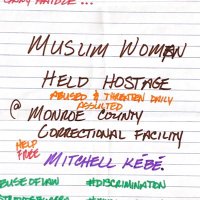 MUSLIM WOMEN
HELD HOSTAGE
ABUSED & THREATEN DAILY
ASSULTED
@ MONROE COUNTY
CORRECTIONAL FACILITY
HELP
FREE
MITCHELL KÉBÉ.
#DISCRIMINATION